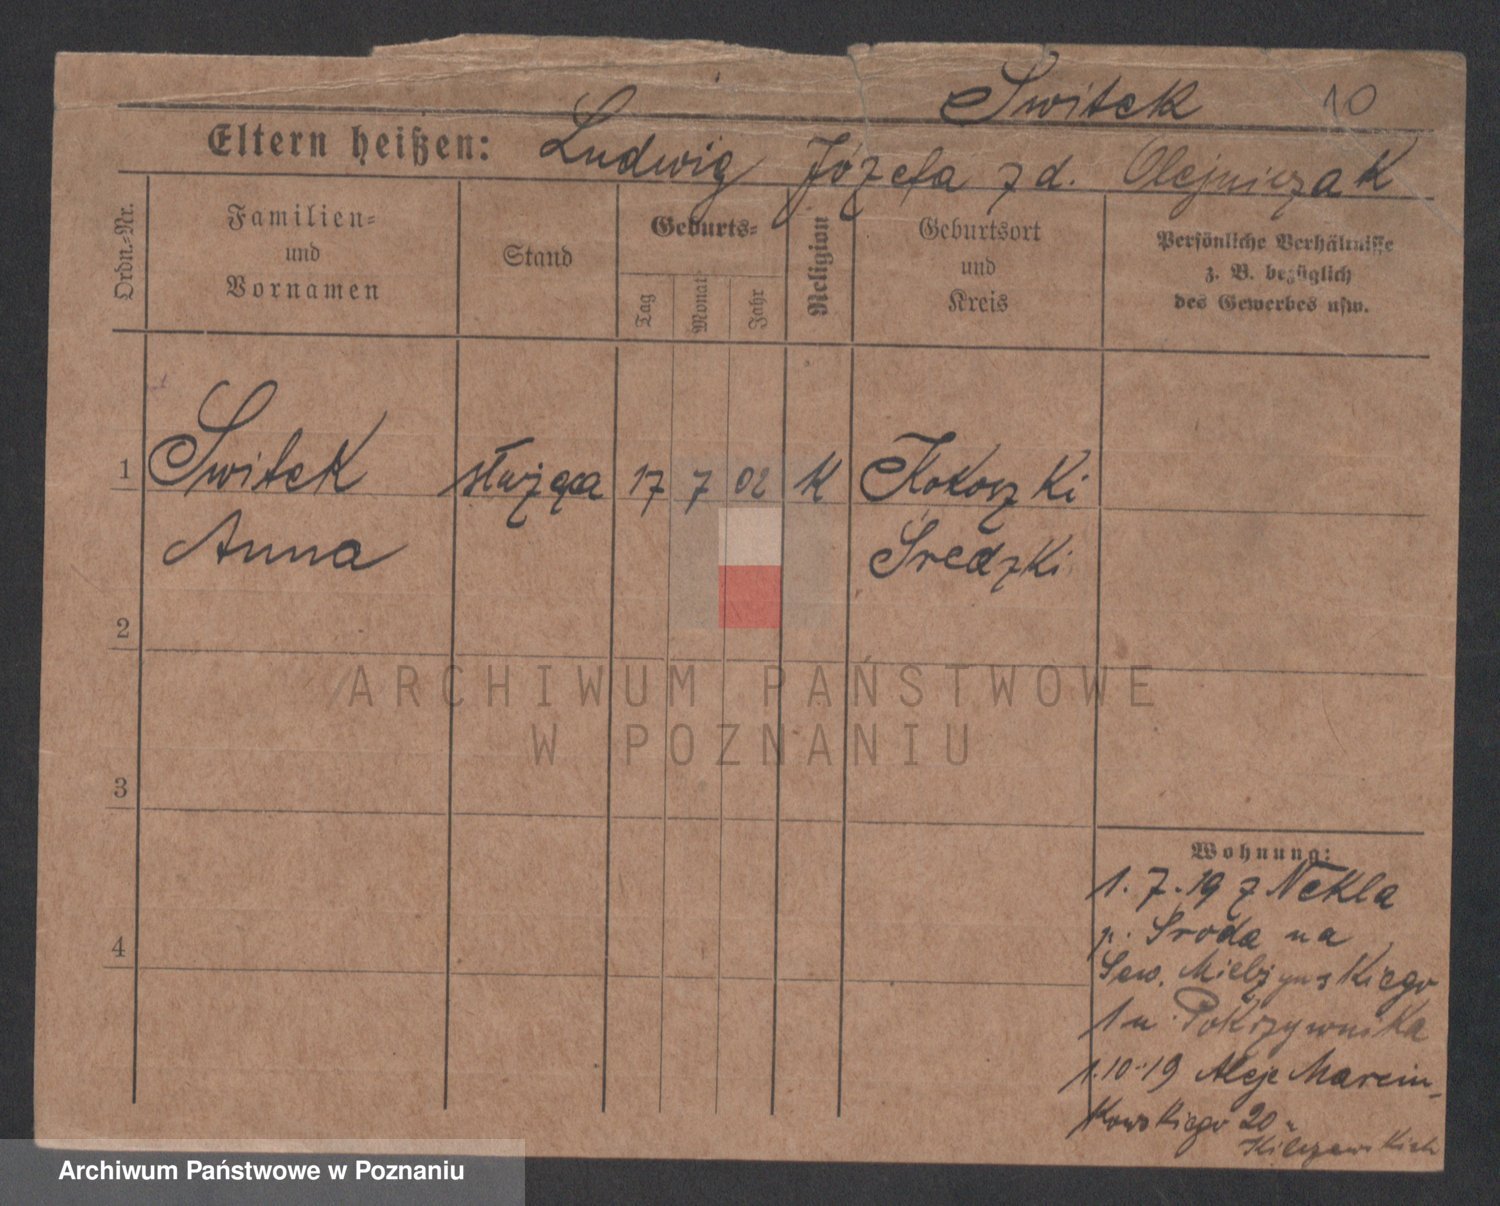 Switek 10
Eltern heißen: Ludwig Józefa z d. Olejniczak
Ordn.-Nr.
Familien-
und
Vornamen
Stand
Geburts-
Tag
Monat
Jahr
Religion
Geburtsort
und
Kreis
Persönliche Verhältnisse
z. B. bezüglich
des Gewerbes usw.
1 Switek służąca 17 7 02 K Kokoszki
Anna Sredzki
2
3
4
Wohnung:
1.7.19 z Nekla
p. Sroda na
Sew. Mielżynskiego
1 u Pokrzywnika
1.10.19 Aleje Marcin-
kowskiego 20 u
ARCHIWUM PAŃSTWOWE
W POZNANIU
Archiwum Państwowe w Poznaniu